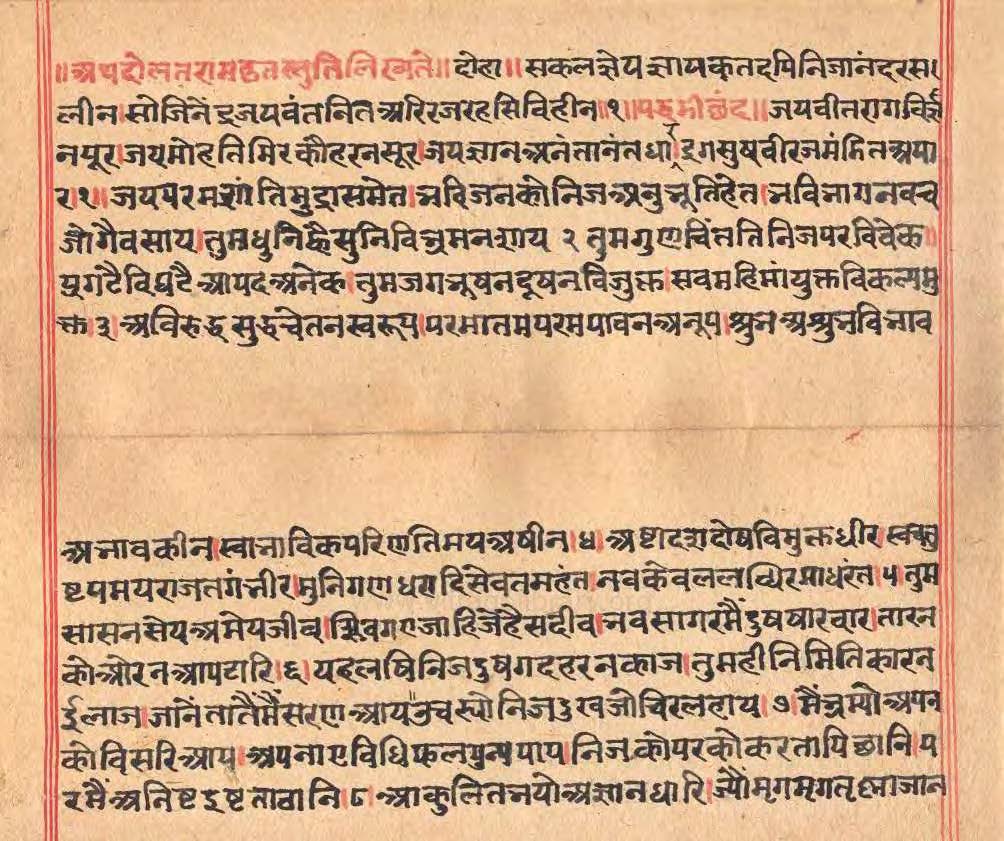 ॥अथ दोलतरामकृतस्तुति लिख्यते॥ दोहा॥ सकलज्ञेयज्ञायकतदपिनिजानंदरस
लीन।सोजिनेंद्रजयवंतनितअरिरजरहसिविहीन॥१॥पद्धडीछंद॥जयवीतरागविज्ञा
नपूर।जयमोहतिमिरकौहरनसूर।जयज्ञानअनंतानंतधार।द्रगसुषवीरजमंडितअपा
र।१।जयपरमशांतिमुद्रासमेत।भविजनकोनिजअनुभूतिहेत।भविभागनवच
जोगैवसाय।तुमधुनिह्वैसुनिविभ्रमनशाय २ तुमगुणचिंततिनिजपरविवेक॥
प्रगटैविघटैआपदअनेक।तुमजगभूषनदूषनविजुक्त।सवमहिमांयुक्तविकल्पमु
क्त।३।अविरुद्धसुद्धचेतनस्वरूप।परमातमपरमपावनअनूप।शुभअशुभविभाव
अभावकीन।स्वाभाविकपरिणतिमयअषीन।४।अष्टादशदोषविमुक्तधीर।स्वचतु
ष्टयमयराजतगंभीर।मुनिगणधरादिसेवतमहंत।नवकेवललब्धिरमाधरंत।५ तुम
सासनसेयअमेयजीव।शिवगएजाहिजैहैसदीव।भवसागरमैंदुषषारवार।तारन
कोऔरनआपटारि।६।यहलषिनिजदुषगदहरनकाज।तुमहीनिमितिकारन
ईलाज।जानेतातैंमैंसरणआय।उचस्योनिजदुखजोचिरलहाय।७।मैंभ्रम्योअपन
कोविसरिआप।अपनाएविधिफलपुन्यपाप।निजकोपरकोकरतापिछानि।प
रमैंअनिष्टइष्टताठानि।८।आकुलितभयोअज्ञानधारि।ज्यौंमृगमृगतृष्णाजान